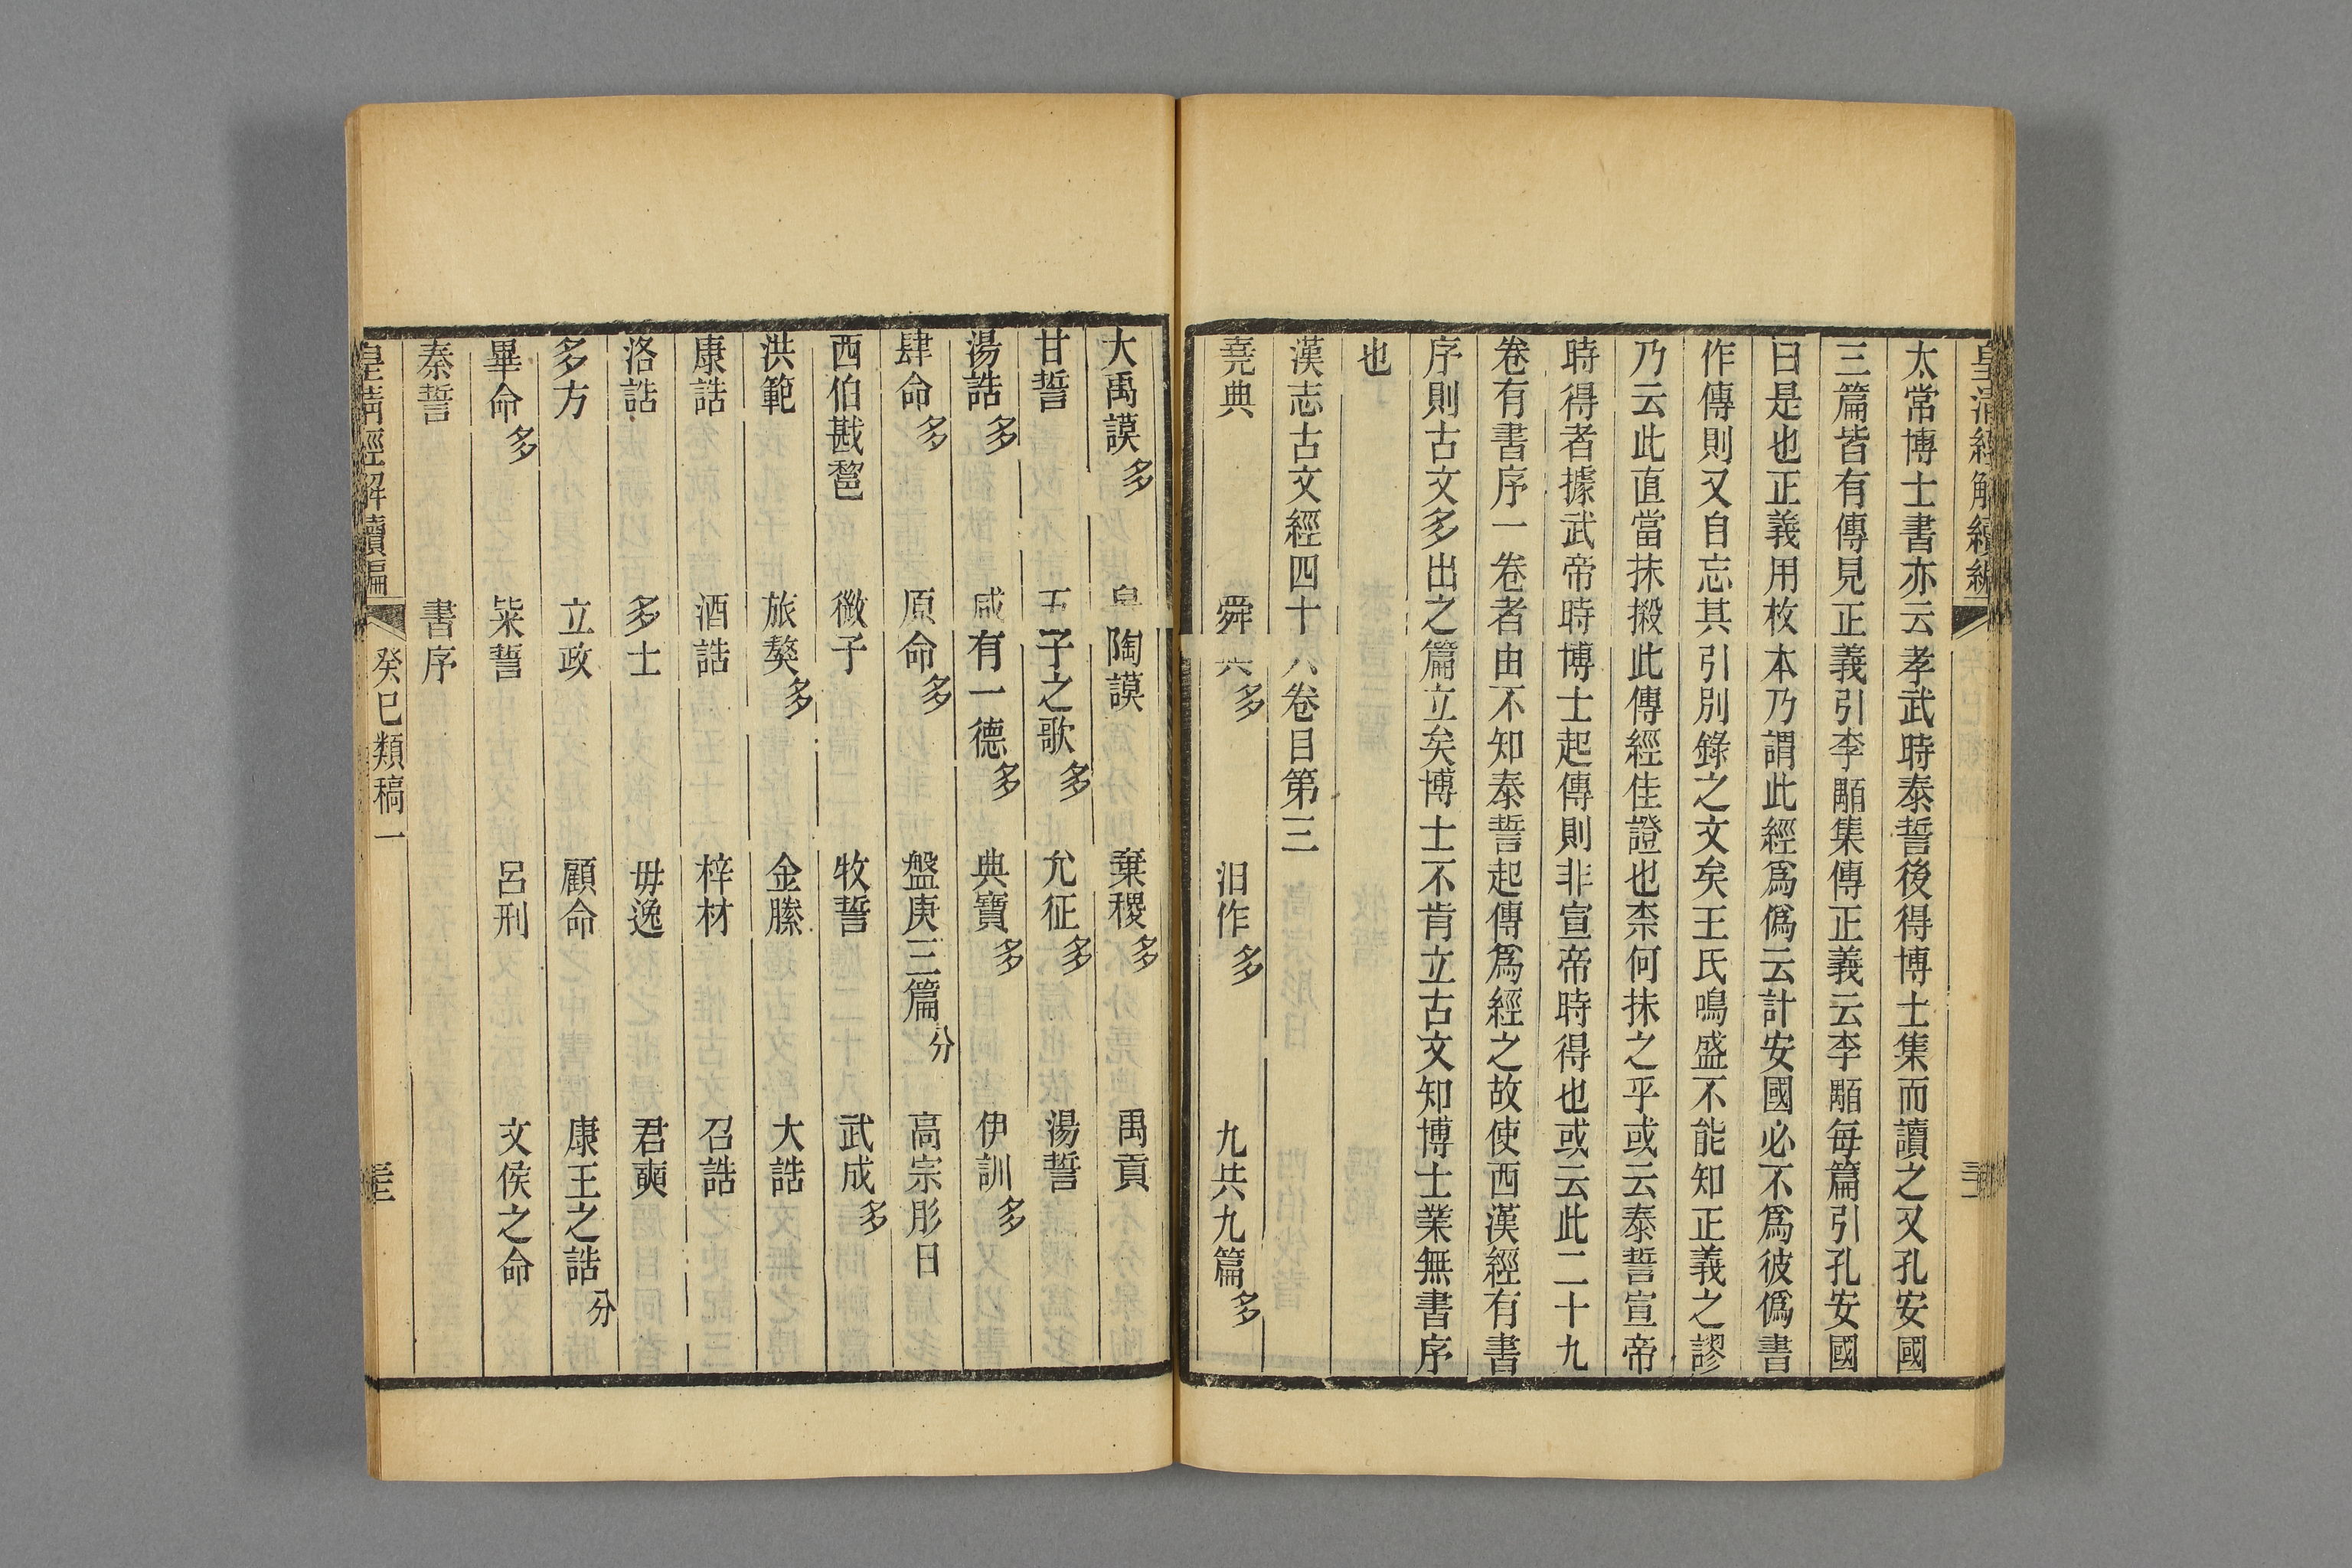 皇清經解續編
太常博士書亦云孝武時泰誓後得博士集而讀之又孔安國
三篇皆有傳見正義引李顒集傳正義云李顒每篇引孔安國
曰是也正義用枚本乃謂此經爲僞云計安國必不爲彼僞書
作傳則又自忘其引別錄之文矣王氏鳴盛不能知正義之謬
乃云此直當抹摋此傳經佳證也柰何抹之乎或云泰誓宣帝
時得者據武帝時博士起傳則非宣帝時得也或云此二十九
卷有書序一卷者由不知泰誓起傳爲經之故使西漢經有書
序則古文多出之篇立矣博士不肯立古文知博士業無書序
也
漢志古文經四十六卷目第三
堯典 舜典多 汨作多 九共九篇多
大禹謨多 皐陶謨 棄稷多 禹貢
甘誓 五子之歌多 允征多 湯誓
湯誥多 咸有一德多 典寶多 伊訓多
肆命多 原命多 盤庚三篇分 高宗肜日
西伯戡𨛫 微子 牧誓 武成多
洪範 旅獒多 金縢 大誥
康誥 酒誥 梓材 召誥
洛誥 多士 毋逸 君奭
多方 立政 顧命 康王之誥分
畢命多 粊誓 呂刑 文侯之命
秦誓 書序
皇淸經解續編 癸巳類稿一